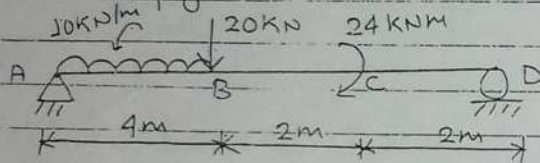 10KN/m 20KN 24KNM
A B C D
4m 2m 2m